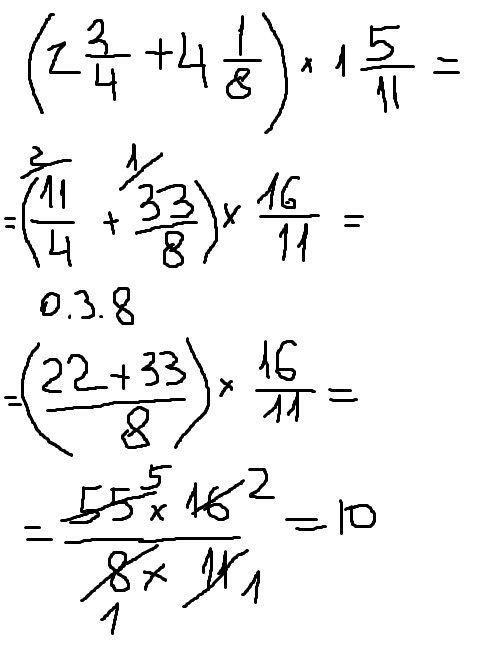 (2 3/4 + 4 1/8) × 1 5/11 =
= (11/4 ² + 33/8 ¹) × 16/11 =
0.3.8
= ((22 + 33)/8) × 16/11 =
= (55 ⁵ × 16 ²)/(8 ₁ × 11 ₁) = 10